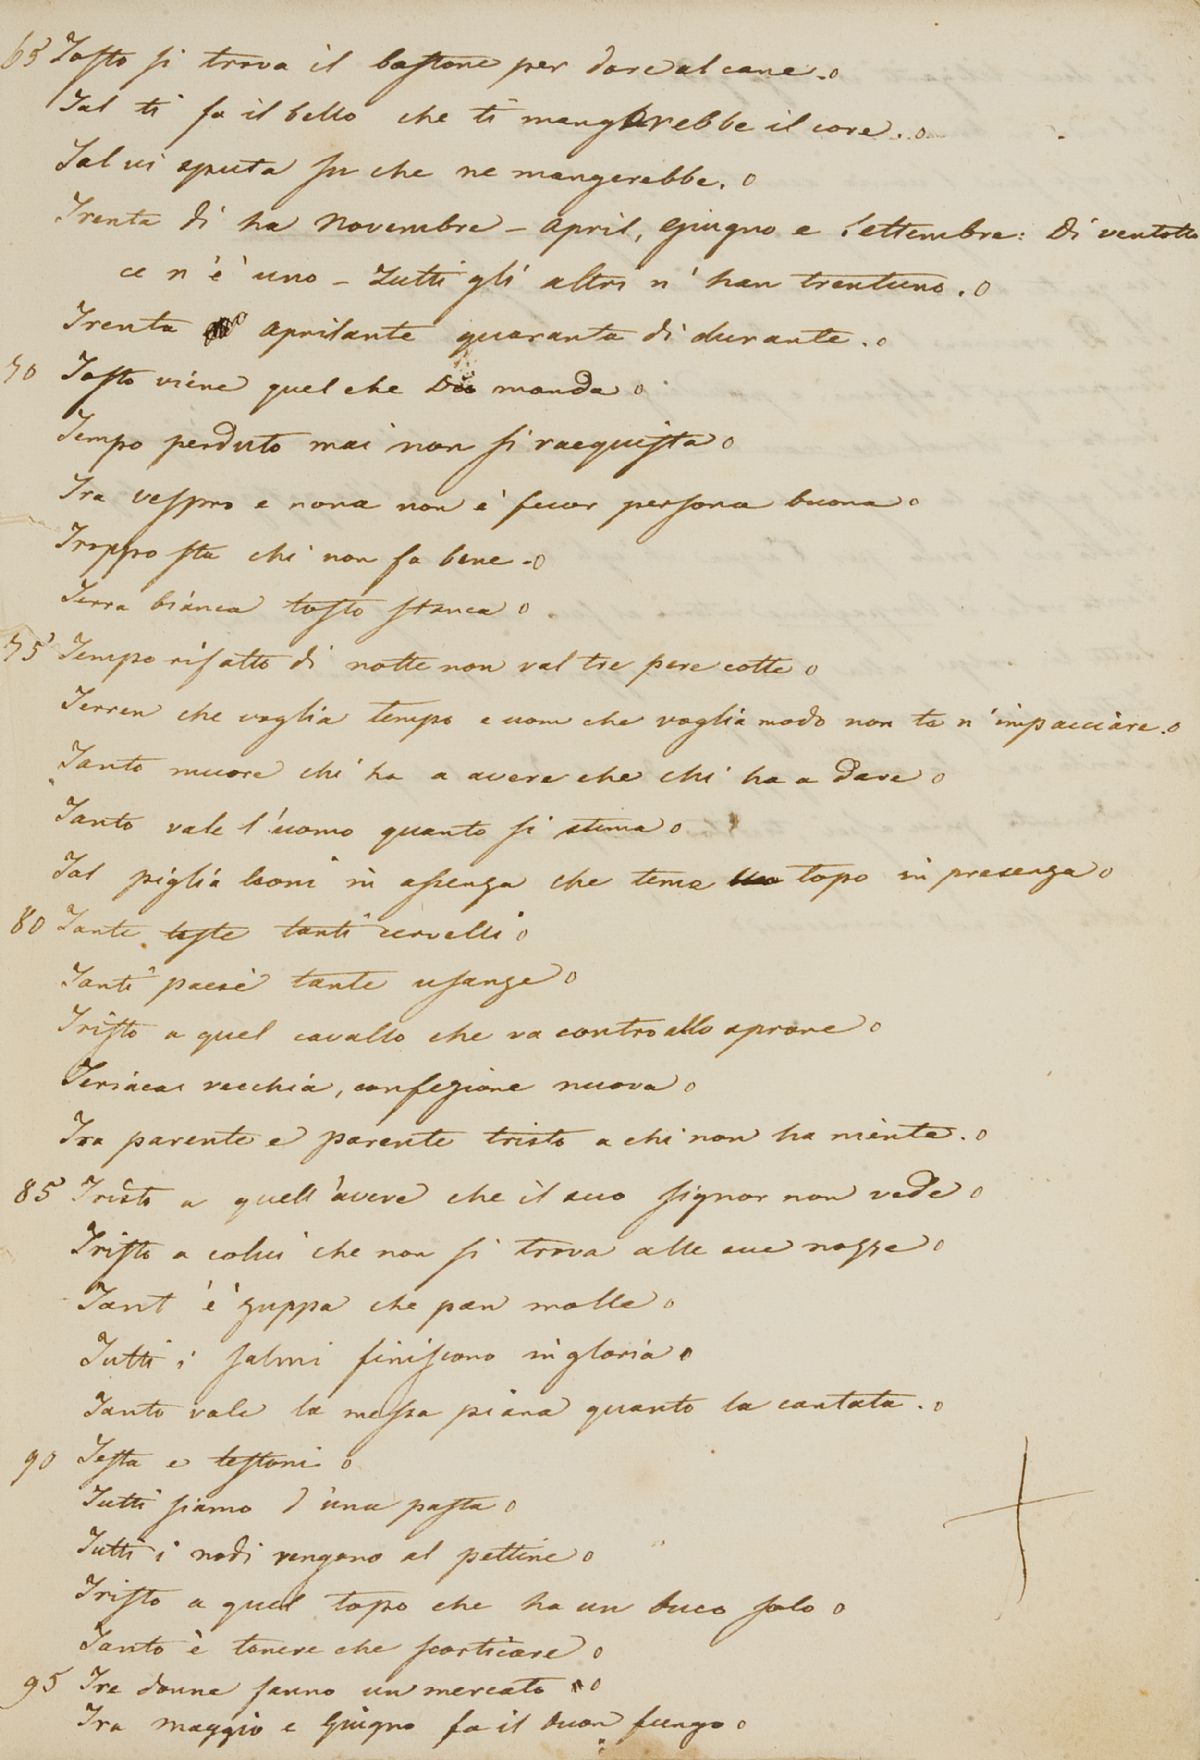 65 Tosto si trova il bastone per dare al cane. o
Tal ti fa il bello che ti mangerebbe il core. o
Tal vi sputa su che ne mangerebbe. o
Trenta dì ha Novembre – April, Giugno e Settembre: Di ventotto
ce n'è uno – Tutti gli altri n'han trentuno. o
Trenta aprilante quaranta dì durante. o
70 Tosto viene quel che Dio manda o
Tempo perduto mai non si racquista o
Tra vespro e nona non è fuor persona buona o
Troppo sta chi non fa bene. o
Terra bianca tosto stanca o
75 Tempo rifatto di notte non val tre pere cotte o
Terren che voglia tempo e uom che voglia modo non te n'impacciare. o
Tanto muore chi ha a avere che chi ha a dare o
Tanto vale l'uomo quanto si stima o
Tal piglia leoni in assenza che teme un topo in presenza o
80 Tante teste tanti cervelli o
Tanti paesi tante usanze o
Tristo a quel cavallo che va contro allo sprone o
Teriaca vecchia, confezione nuova o
Tra parente e parente tristo a chi non ha niente. o
85 Tristo a quell'avere che il suo signor non vede o
Tristo a colui che non si trova alle sue nozze o
Tant'è zuppa che pan molle o
Tutti i salmi finiscono in gloria o
Tanto vale la messa piana quanto la cantata. o
90 Testa e testoni o
Tutti siamo d'una pasta o
Tutti i nodi vengono al pettine o
Tristo a quel topo che ha un buco solo o
Tanto è tenere che scorticare o
95 Tre donne fanno un mercato o
Tra maggio e Giugno fa il buon fungo o